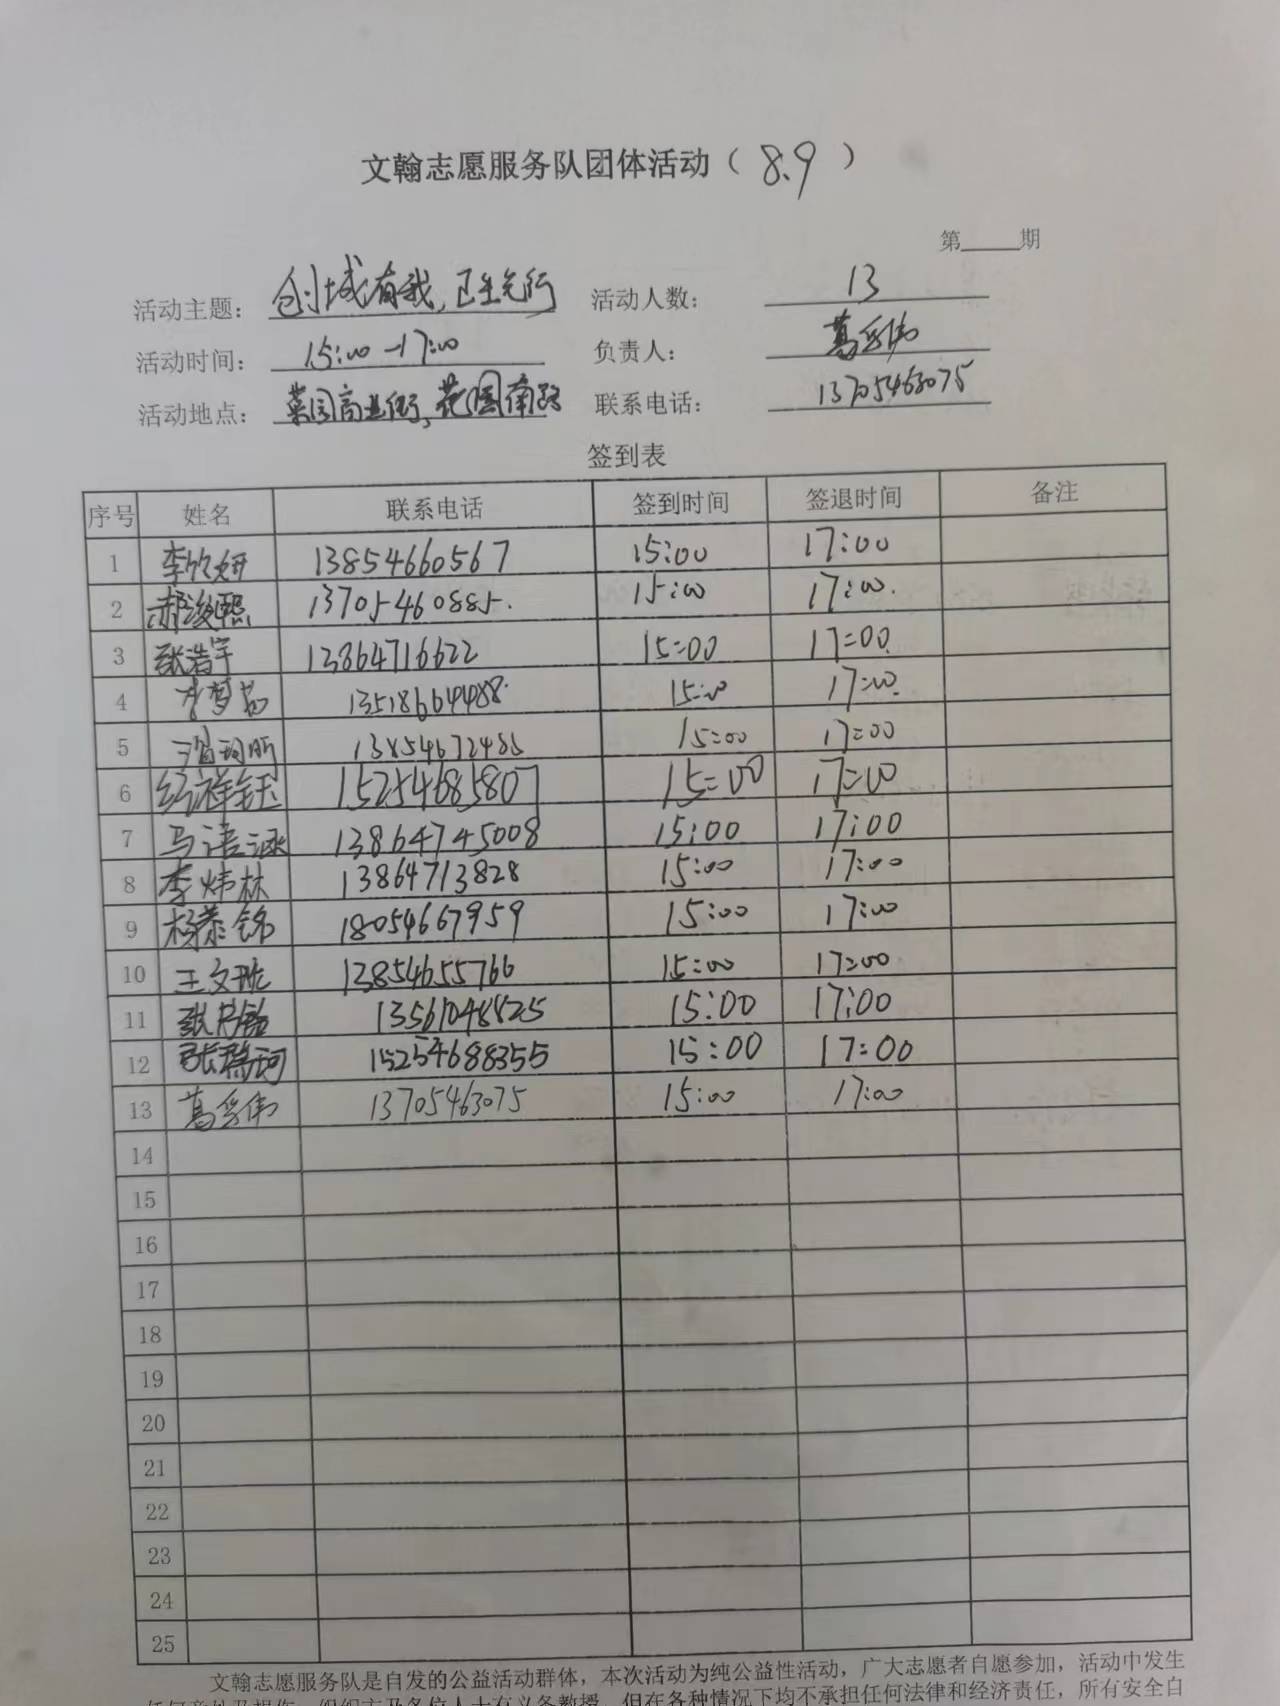 文翰志愿服务队团体活动（8.9）
第 期
活动主题：创城有我，卫生先行 活动人数：13
活动时间：15:00-17:00 负责人：葛岳伟
活动地点：菜园商业街，花园南路 联系电话：13705463075
签到表
序号 姓名 联系电话 签到时间 签退时间 备注
1 李欣妍 13854660567 15:00 17:00
2 郝浚熙 13705460885. 15:00 17:00.
3 张浩宇 13864716622 15:00 17:00
4 李梦茹 13518664488 15:00 17:00.
5 13854672485 15:00 17:00
6 纪祥钰 15254685807 15:00 17:00
7 马语涵 13864745008 15:00 17:00
8 李炜林 13864713828 15:00 17:00
9 杨蕊铭 18054667959 15:00 17:00
10 王文 13854655766 15:00 17:00
11 张 13561048825 15:00 17:00
12 张瑞珂 15254688355 15:00 17:00
13 葛岳伟 13705463075 15:00 17:00
14
15
16
17
18
19
20
21
22
23
24
25
文翰志愿服务队是自发的公益活动群体，本次活动为纯公益性活动，广大志愿者自愿参加，活动中发生
任何意外及损伤，组织方及各位人士有义务救援，但在各种情况下均不承担任何法律和经济责任，所有安全自